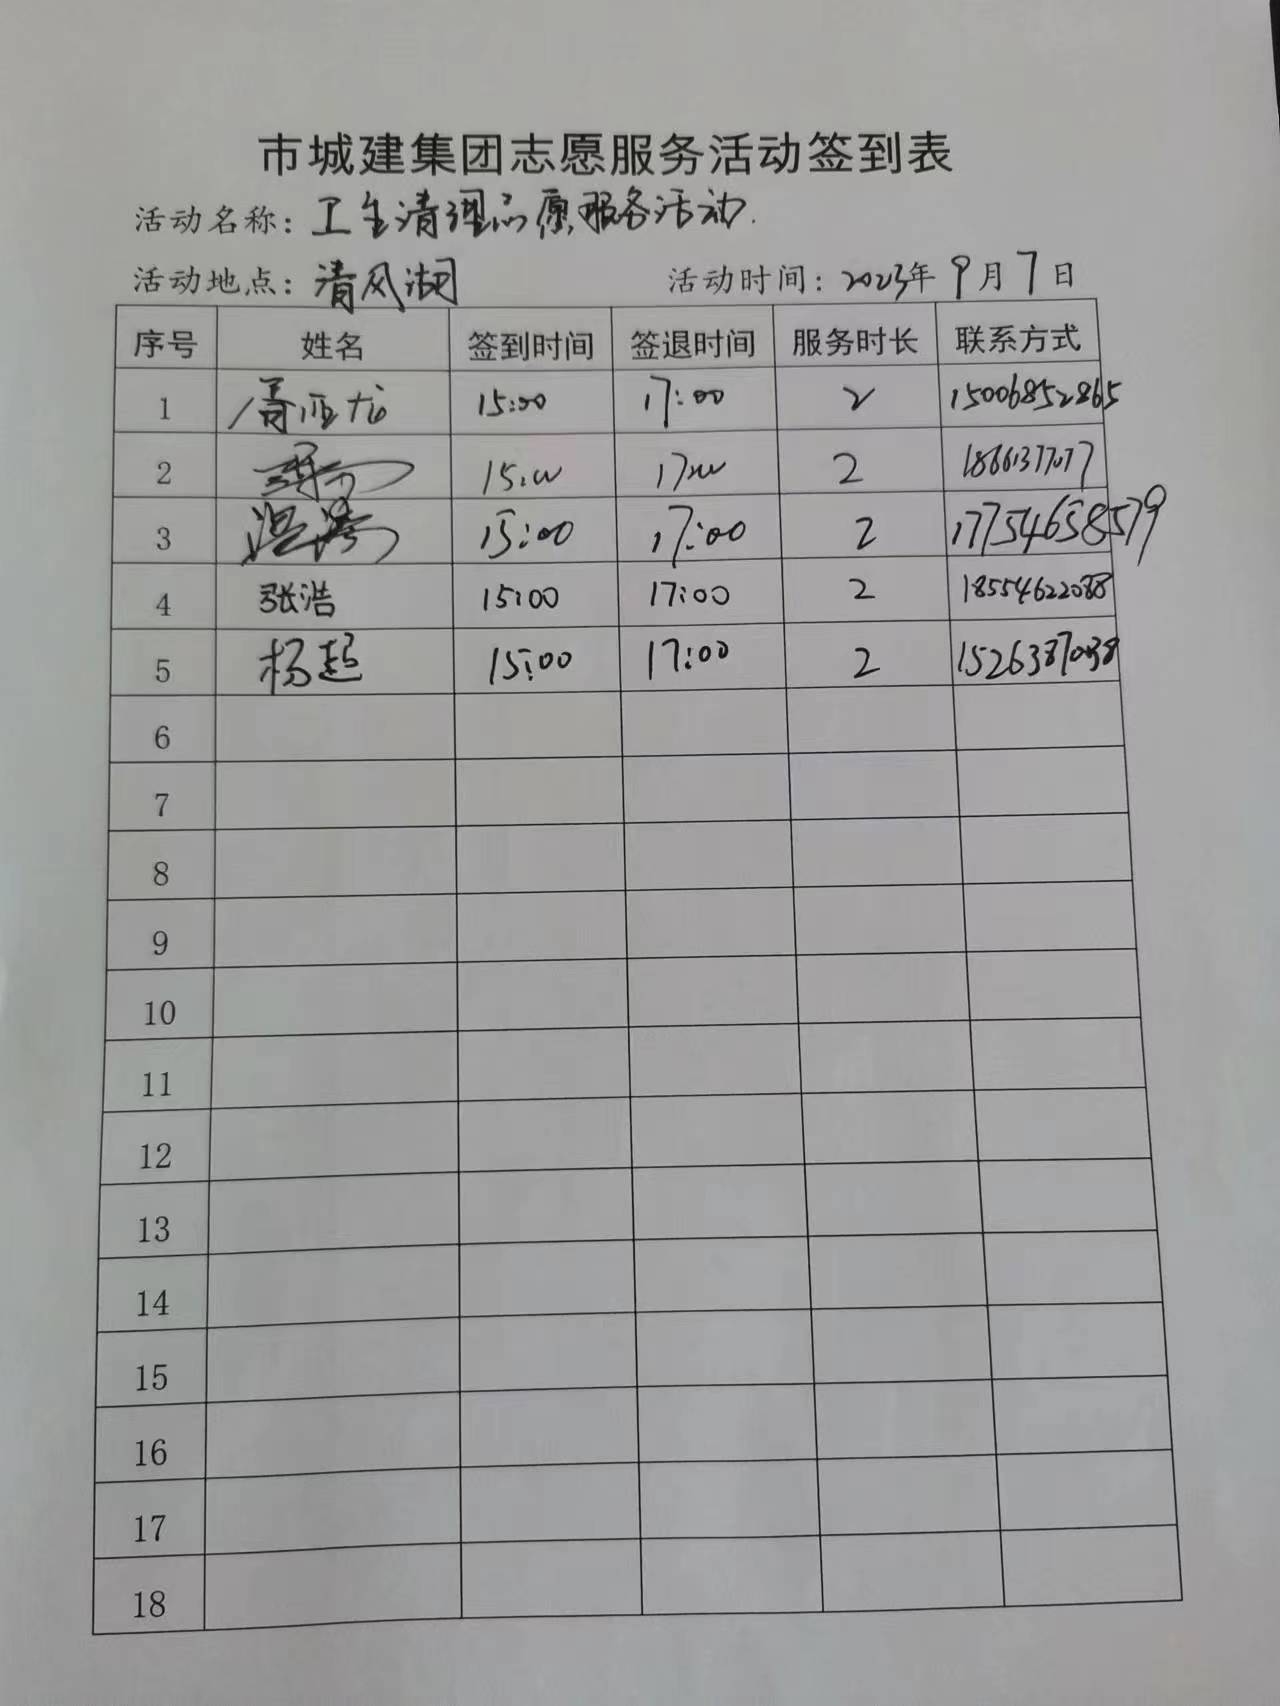 市城建集团志愿服务活动签到表
活动名称：卫生清理志愿服务活动
活动地点：清风湖 活动时间：2023年9月7日
序号 姓名 签到时间 签退时间 服务时长 联系方式
1 15:00 17:00 2 15006852865
2 15:00 17:00 2
3 15:00 17:00 2 17754658579
4 张浩 15:00 17:00 2 18554622088
5 杨超 15:00 17:00 2
6
7
8
9
10
11
12
13
14
15
16
17
18